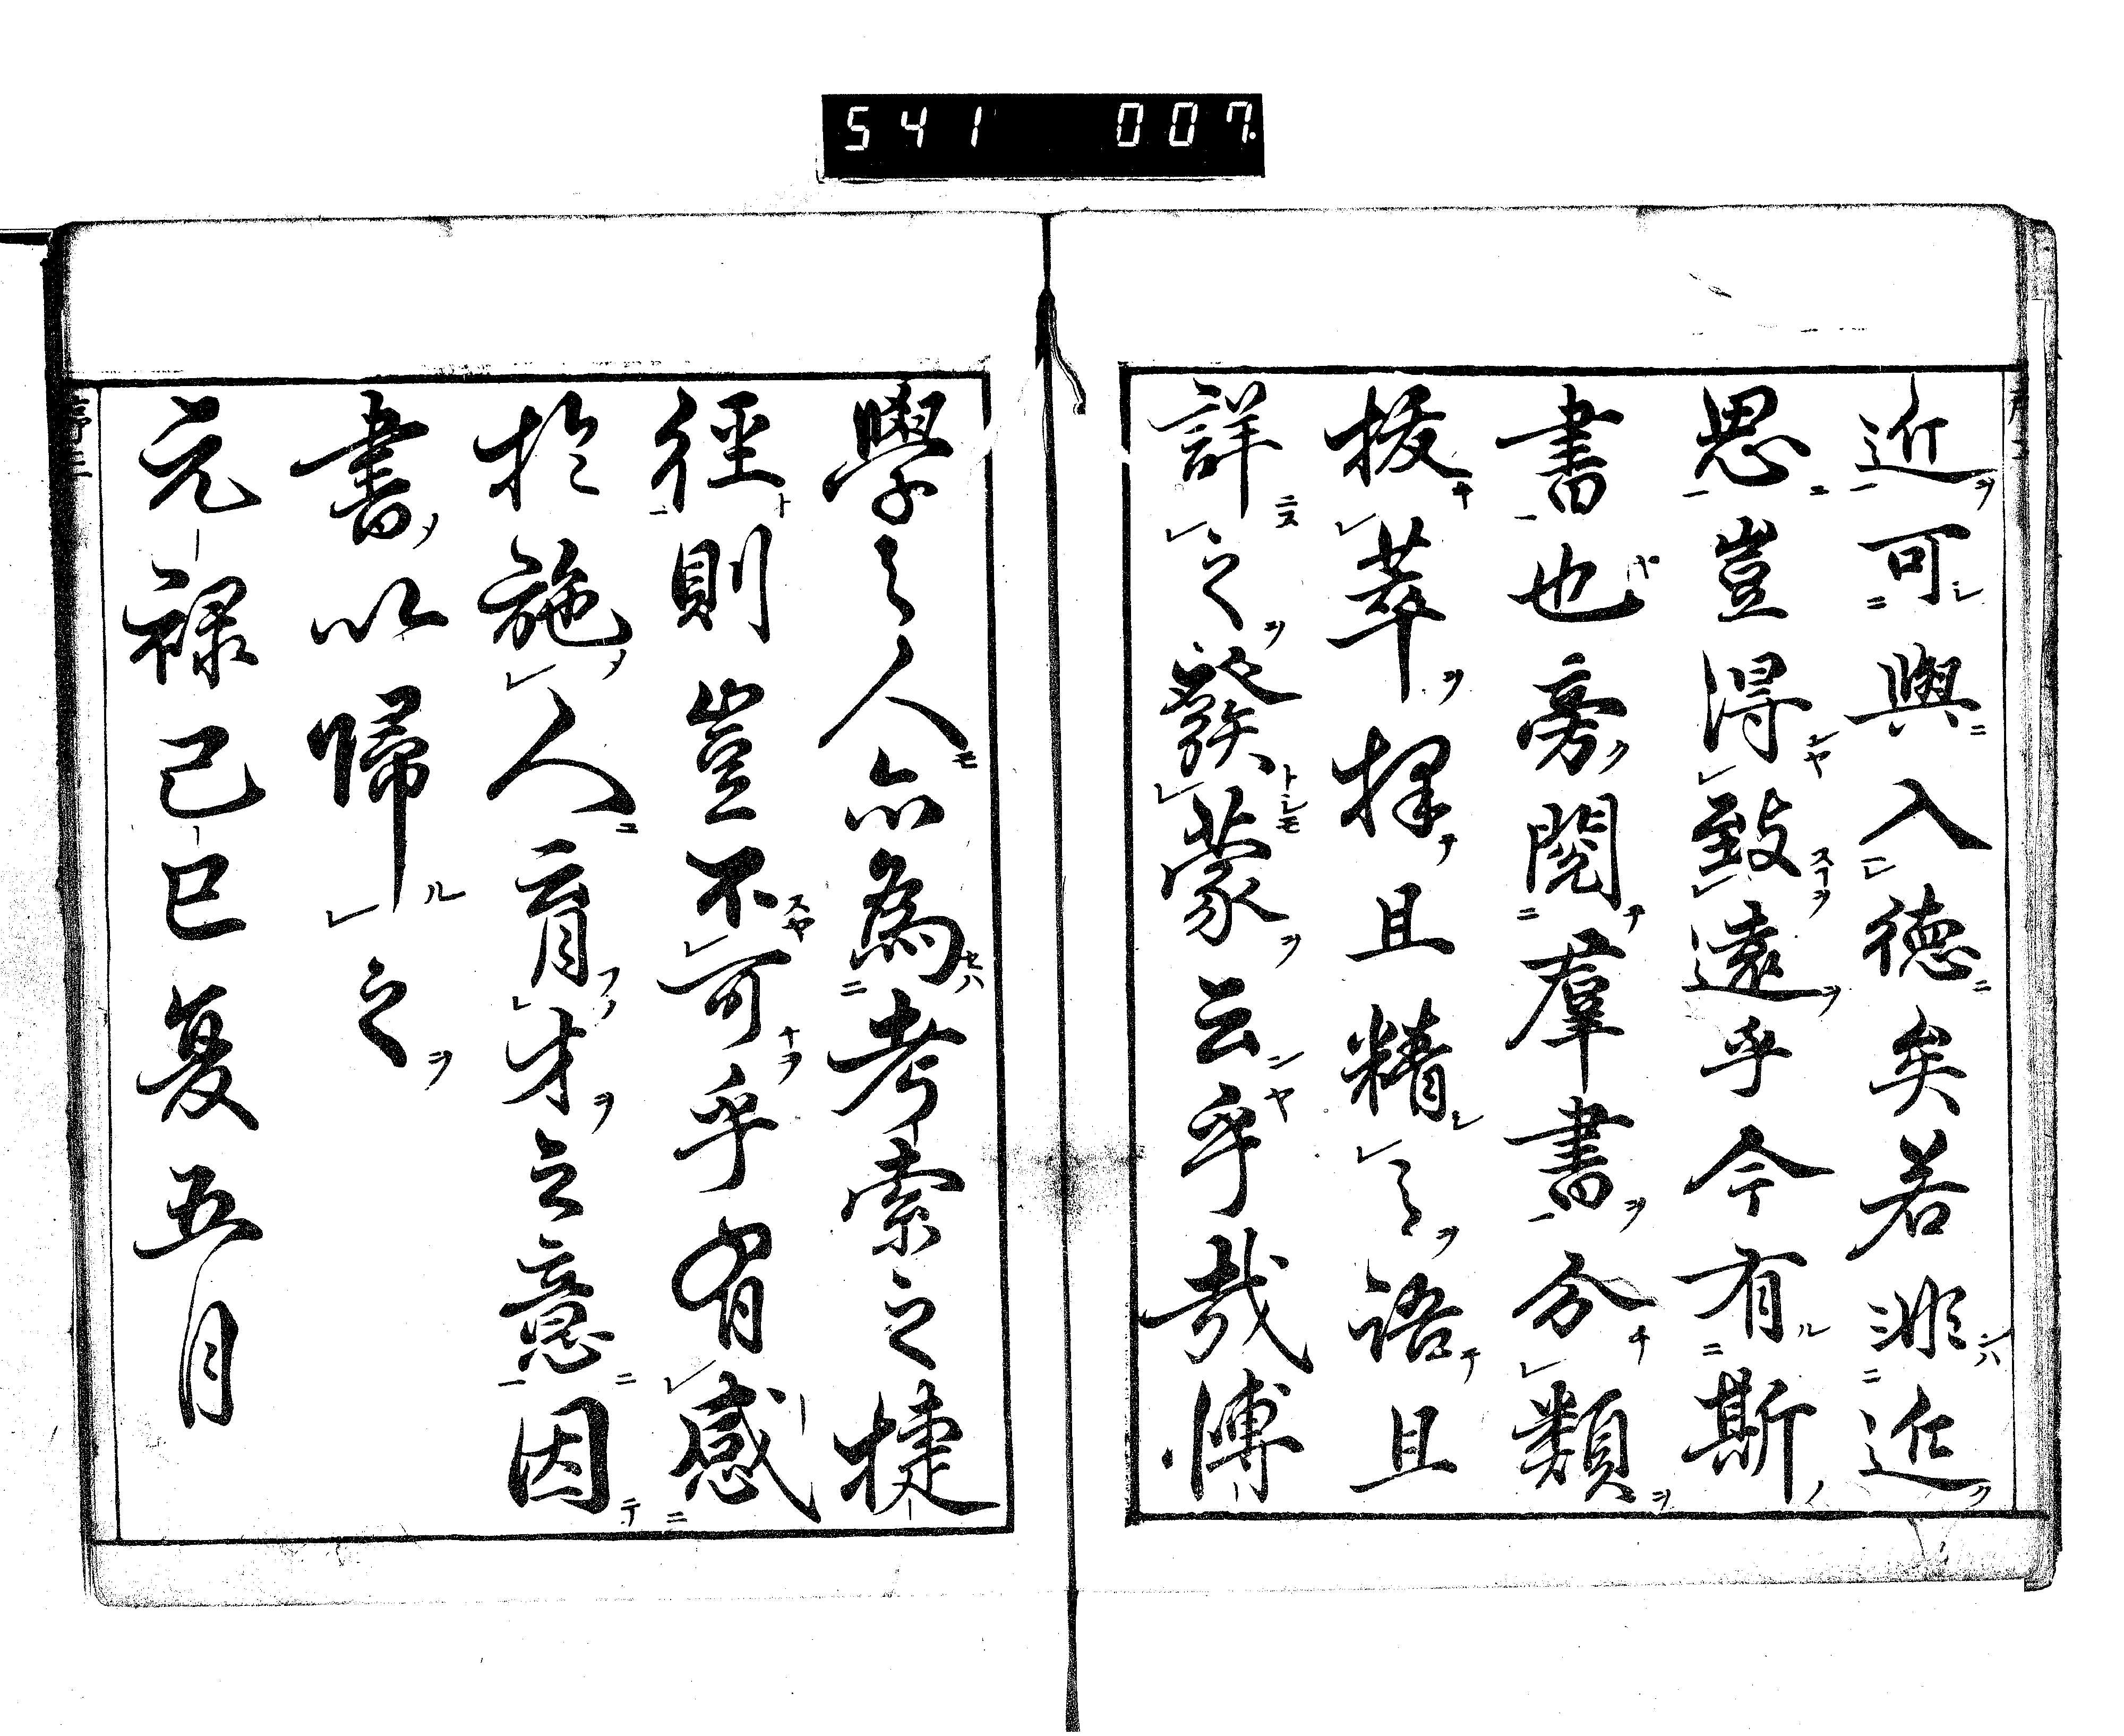 541 007.
近可與入德矣若非近
思豈得致遠乎今有斯
書也旁閱羣書分類
拔萃擇且精之語且
詳之發蒙云乎哉博
學之人亦為考索之捷
徑則豈不可乎有感
於施人育才之意因
書以歸之
元祿己巳夏五月